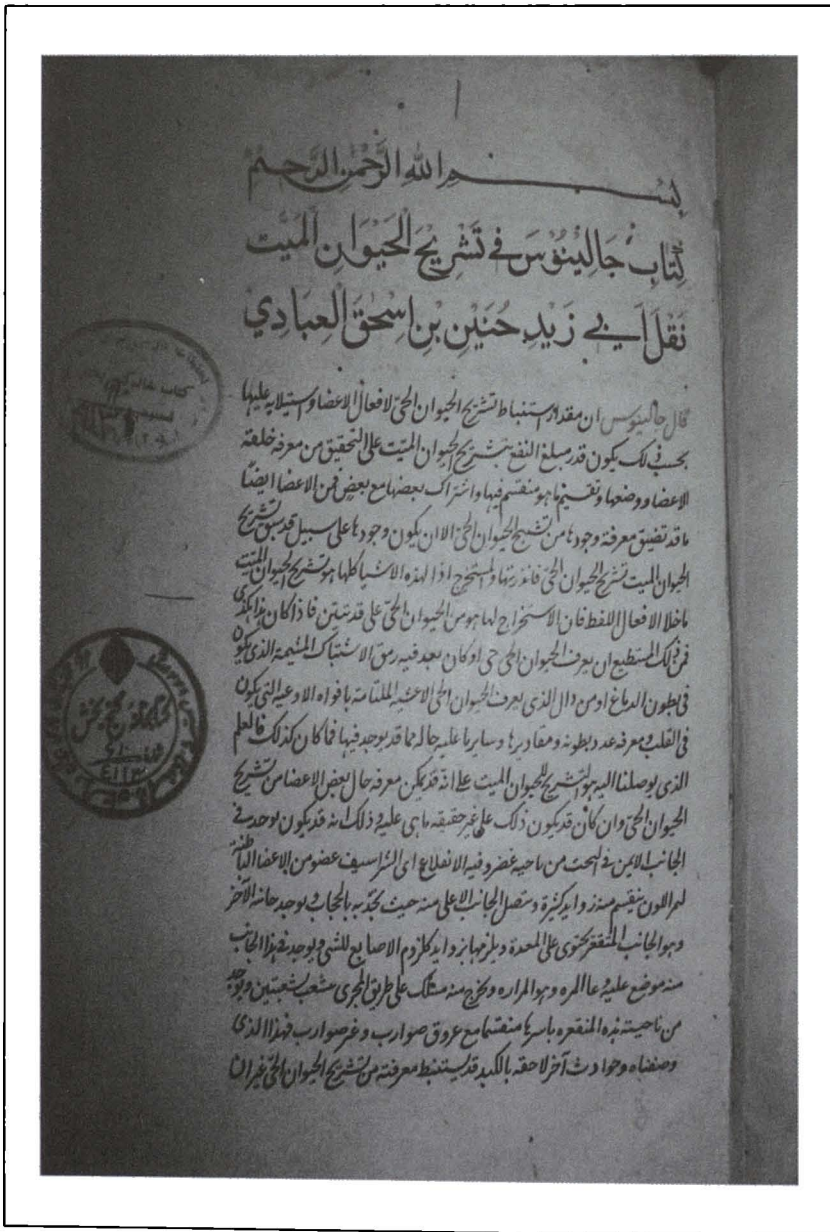 بسم الله الرحمن الرحيم
كتاب جالينوس في تشريح الحيوان الميت
نقل ابي زيد حنين بن اسحق العبادي
قال جالينوس ان مقدار استنباط تشريح الحيوان الحي لافعال الاعضا واستيلايه عليها
بحسب ذلك يكون قدر مبلغ النفع بتشريح الحيوان الميت على التحقيق من معرفه خلقة
الاعضا ووضعها وتقسيم ما هو منقسم فيها واشتراك بعضها مع بعض فمن الاعضا ايضًا
ما قد تضيق معرفة وجودها من تشريح الحيوان الحي الا ان يكون وجودها على سبيل قد سبق تشريح
الحيوان الميت تشريح الحيوان الحي والمستخرج اذا لهذه الاشيا كلها هو تشريح الحيوان الميت
ما خلا الافعال فقط فان الاستخراج لها هو من الحيوان الحي على قد تبين فاذا كان هذا هكذى
فمن ذلك المستطيع ان يعرف الحيوان الحي او كان بعد فيه رمق الاشتباك المشيمة الذي يكون
في بطون الدماغ او من ذال الذي يعرف الحيوان الحي الاغشيه الملتامة بافواه الاوعيه التي يكون
في القلب ومعرفه عدد بطونه ومقاديرها وساير ما عليه حاله مما قد يوجد فيها فما كان كذلك فالعلم
الذى يوصلنا اليه هو التشريح للحيوان الميت على انه قد يمكن معرفه حال بعض الاعضا من تشريح
الحيوان الحي وان كان قد يكون ذلك على غير حقيقه ما هى عليه وذلك انه قد يكون يوجد في
الجانب الايمن في البحث من ناحيه غضروفيه الانقلاع اى الشراسيف عضو من الاعضا الباطنة
اللون ينقسم منه زوايد كثيرة ويتصل الجانب الاعلى منه حيث تحدبه بالحجاب ويوجد جانبه الآخر
وهو الجانب المتقعر يحتوى على المعدة ويلزمها بزوايد كلزوم الاصابع للشى ويوجد في هذا الجانب
منه موضع عليه وعا المره وهو المراره ويخرج منه مسلك على طريق المجرى متشعب بشعبتين ويوجد
من ناحيته هذه المتقعره باسرها منقسما مع عروق ضوارب وغير ضوارب فهذا الذى
وصفناه وحوادث آخر لاحقه بالكبد قد يستنبط معرفته من تشريح الحيوان الحي غير ان